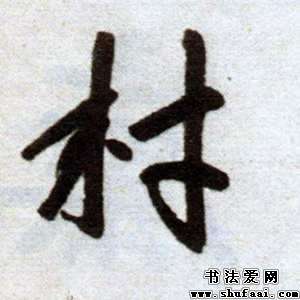 村
书法爱网
www.shufaai.com